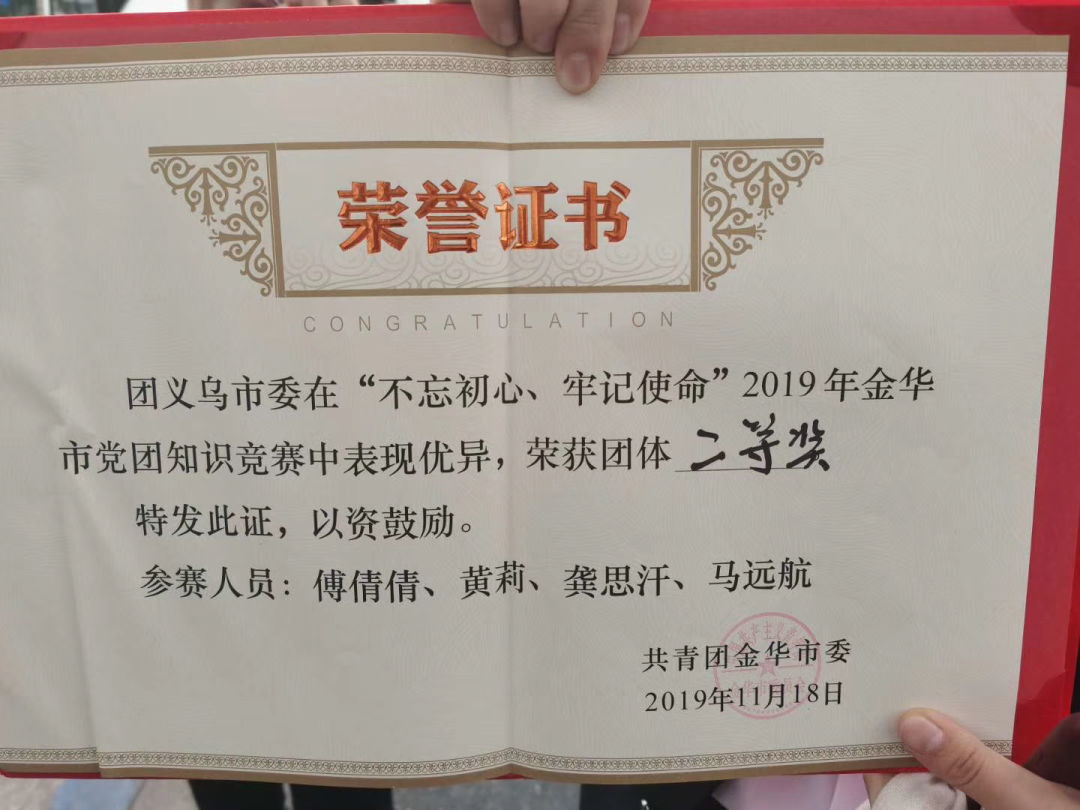 荣誉证书
CONGRATULATION
团义乌市委在“不忘初心、牢记使命”2019年金华
市党团知识竞赛中表现优异，荣获团体 二等奖
特发此证，以资鼓励。
参赛人员：傅倩倩、黄莉、龚思汗、马远航
共青团金华市委
2019年11月18日